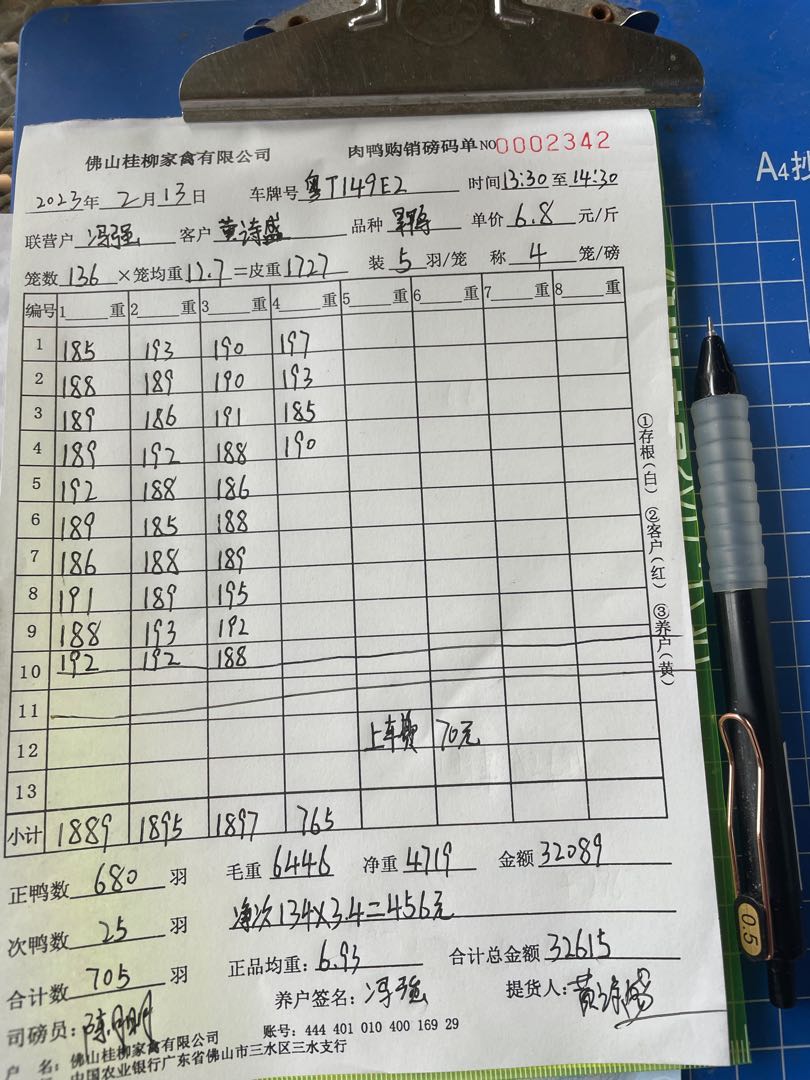 佛山桂柳家禽有限公司 肉鸭购销磅码单 NO 0002342
2023年 2月 13日 车牌号 粤T149E2 时间 13:30 至 14:30
联营户 冯强 客户 黄诗盛 品种 单价 6.8 元/斤
笼数 136 ×笼均重 12.7 =皮重 1727 装 5 羽/笼 称 4 笼/磅
编号 1 重 2 重 3 重 4 重 5 重 6 重 7 重 8 重
1 185 193 190 197
2 188 189 190 193
3 189 186 191 185
4 189 192 188 190
5 192 188 186
6 189 185 188
7 186 188 189
8 191 189 195
9 188 193 192
10 192 192 188
11
12 上车费 70元
13
小计 1889 1895 1897 765
正鸭数 680 羽 毛重 6446 净重 4719 金额 32089
次鸭数 25 羽 净次 134×3.4=456元
合计数 705 羽 正品均重: 6.93 合计总金额 32615
司磅员: 养户签名: 冯强 提货人: 黄诗盛
户 名: 佛山桂柳家禽有限公司 账号: 444 401 010 400 169 29
中国农业银行广东省佛山市三水区三水支行
①存根(白) ②客户(红) ③养户(黄)
A4抄
0.5